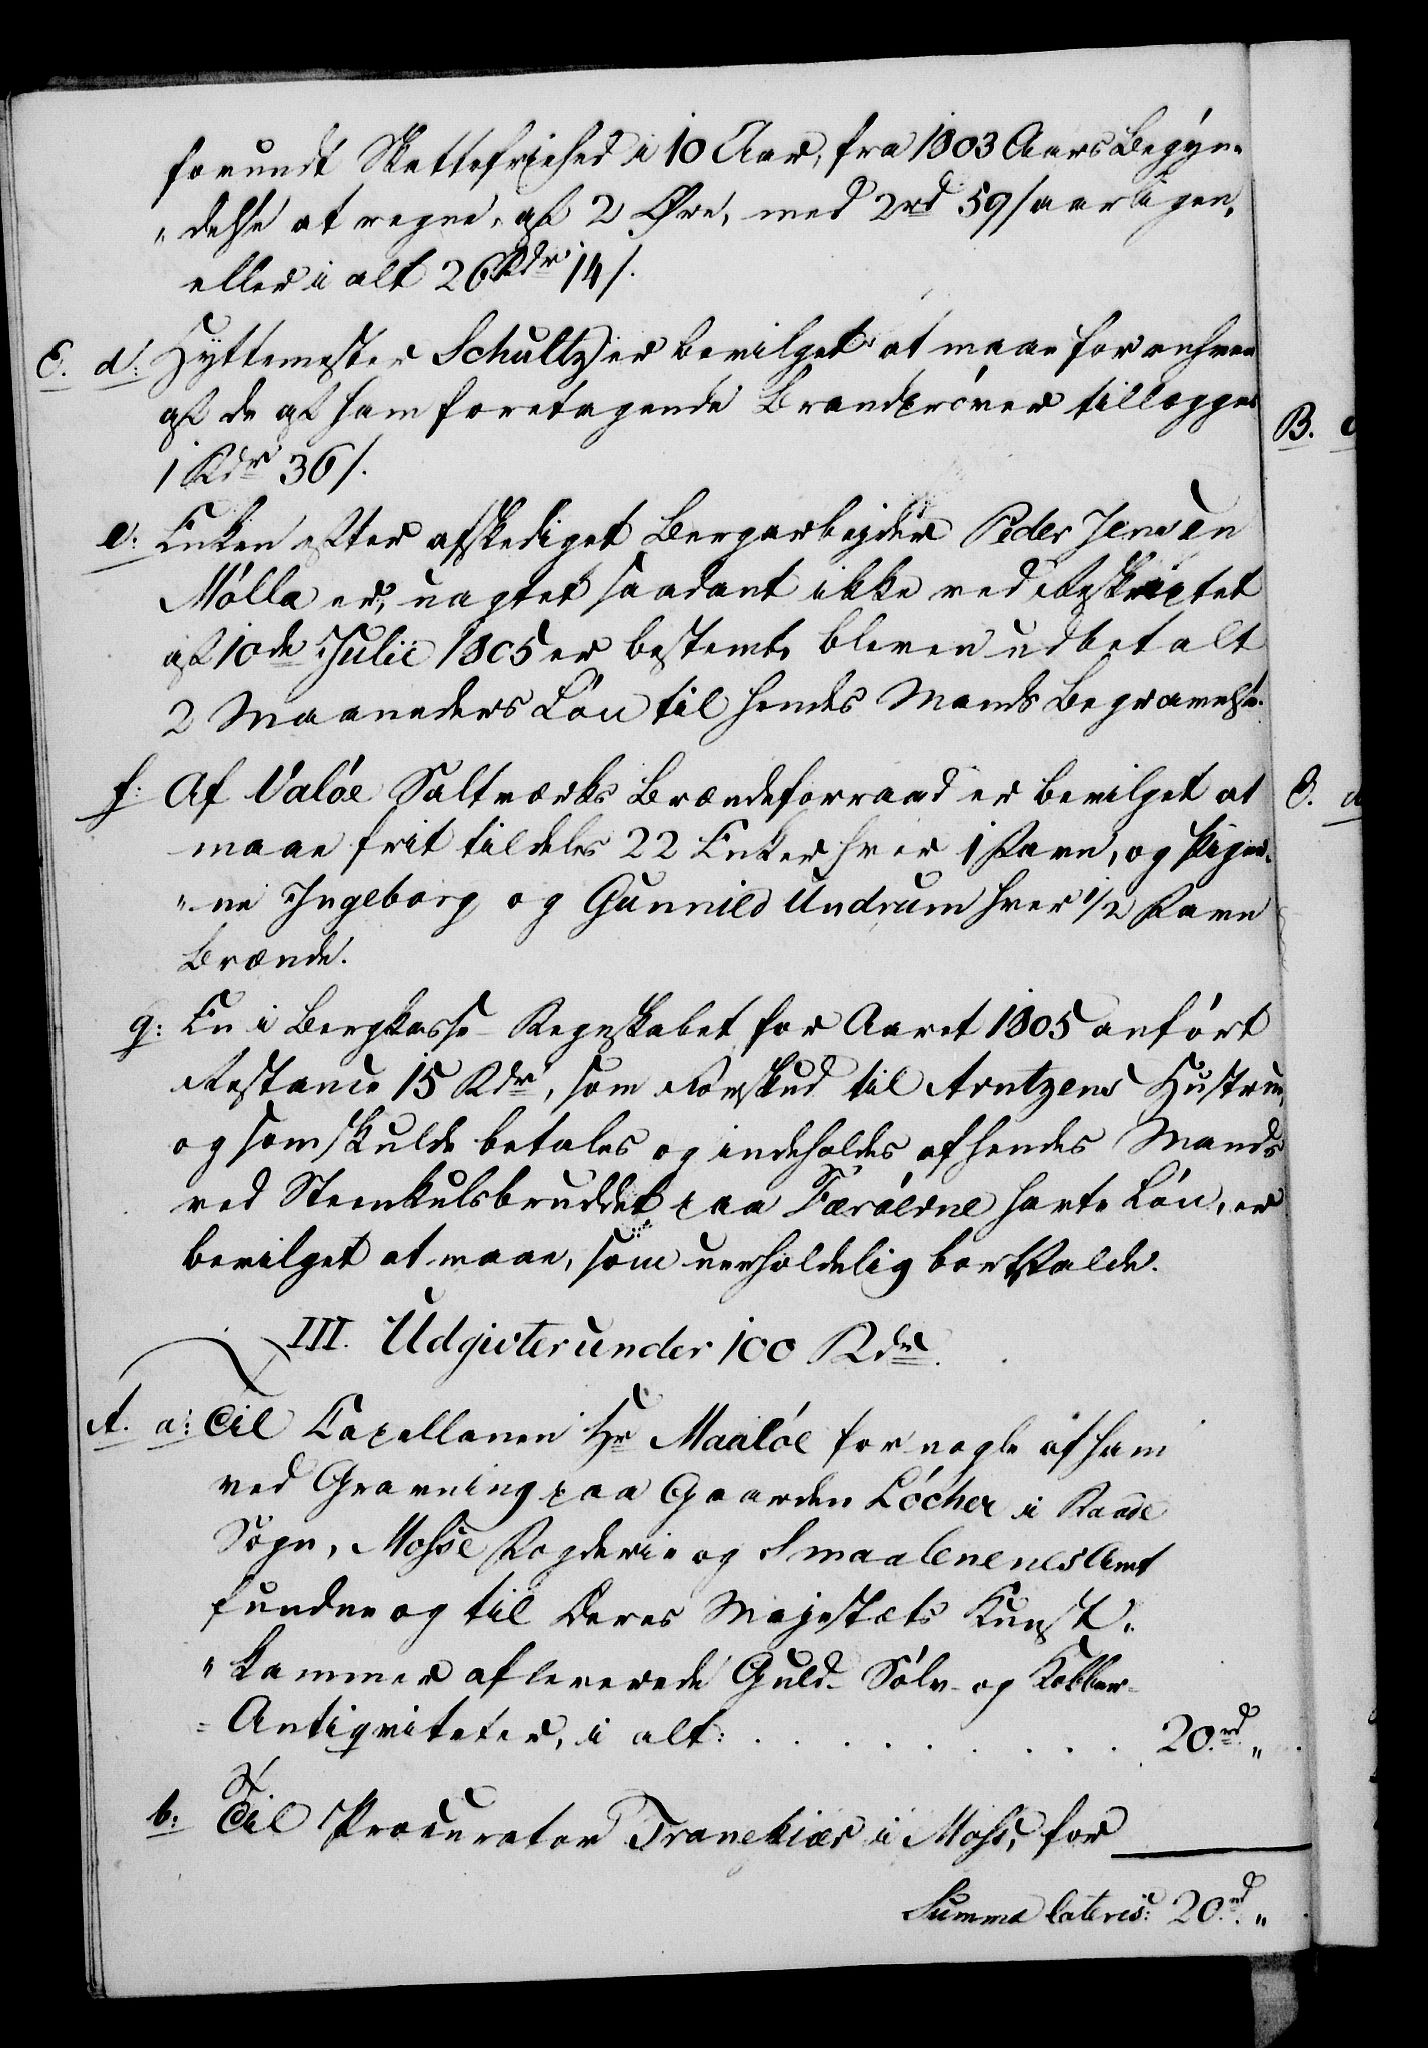 forundt Skattefriehed i 10 Aar, fra 1803 Aars Begyn-
"delse at regne, af 2 Øre, med 2rd 59s aarligen,
eller i alt 26 Rdr 14s.
C. d: Hyttemester Schultz er bevilget at maae for enhver
af de af ham foretagende Brandprøver tillægges
1 Rdr 36s.
e: Enken efter afskediget Bergarbejder Peder Jensen
Mølla er, uagtet saadant ikke ved Reskriptet
af 10de Julii 1805 er bestemt, bleven udbetalt
2 Maaneders Løn til hendes Mands Begravelse.
f: Af Valøe Saltværks Brændeforraad er bevilget at
maae frit tildeles 22 Enker hver 1 Favn, og Piger-
"ne Ingeborg og Gunnild Undrum hver 1/2 Favn
Brænde.
g: En i Bergkasse-Regnskabet for Aaret 1805 anført
Restance 15 Rdr, som Forskud til Arntzens Hustrue,
og som skulde betales og indeholdes af hendes Mands
ved Steenkulsbruddet paa Færøerne havte Løn, er
bevilget at maae, som uerholdelig bortfalde.
III. Udgivter under 100 Rdr.
A. a: Til Capellanen Hr Maaløe for nogle af ham
ved Gravning paa Gaarden Löcher i Raade
Sogn, Mosse Fogderie og Smaalenenes Amt
fundne og til Deres Majestæts Kunst-
"kammer afleverede Guld- Sølv- og Kobber-
=Antiqviteter, i alt: . . . . . . . . . 20.rd "
b: Til Procurator Tranekiær i Moss, for
Summa lateris: 20.rd "
B.
C.